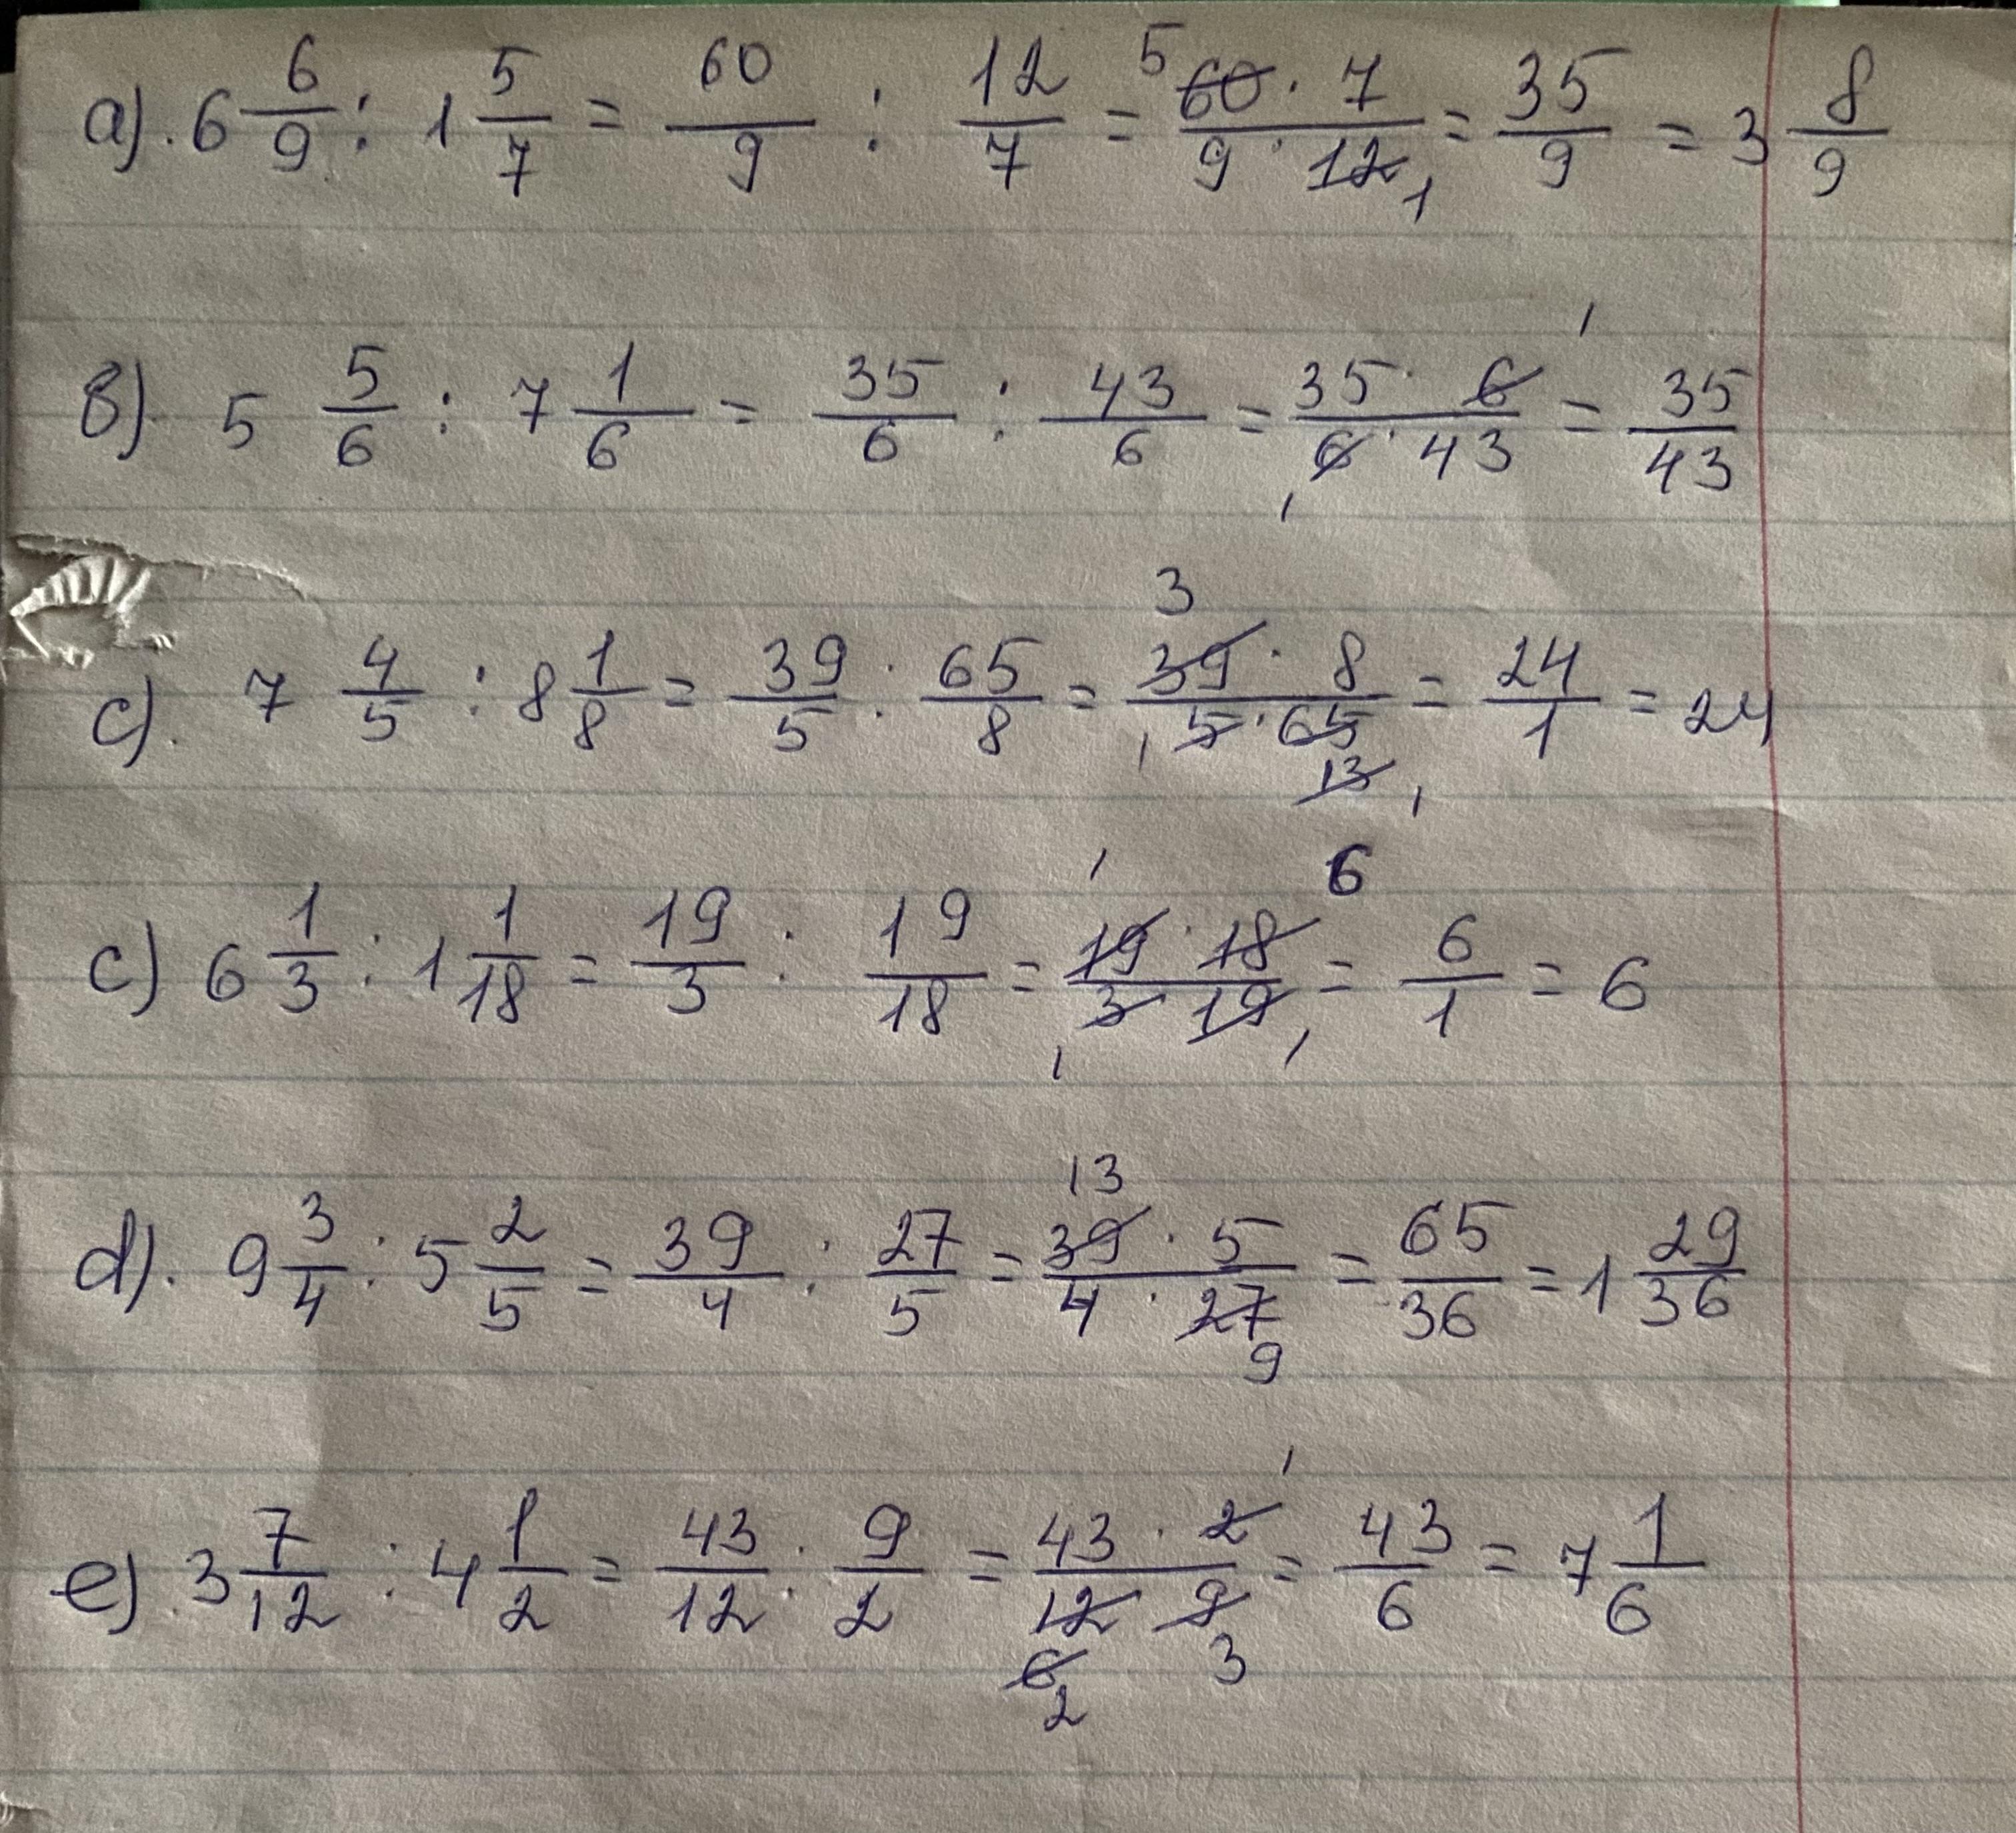 a). 6 6/9 : 1 5/7 = 60/9 : 12/7 = 5 60 · 7 / 9 · 12 1 = 35/9 = 3 8/9
b) 5 5/6 : 7 1/6 = 35/6 : 43/6 = 35 · 6 1 / 1 6 · 43 = 35/43
c). 7 4/5 : 8 1/8 = 39/5 : 65/8 = 3 39 · 8 / 1 5 · 65 13 1 = 24/1 = 24
c) 6 1/3 : 1 1/18 = 19/3 : 19/18 = 1 19 · 18 6 / 1 3 · 19 1 = 6/1 = 6
d). 9 3/4 : 5 2/5 = 39/4 : 27/5 = 13 39 · 5 / 4 · 27 9 = 65/36 = 1 29/36
e) 3 7/12 : 4 1/2 = 43/12 : 9/2 = 43 · 2 1 / 12 6 2 9 3 = 43/6 = 7 1/6